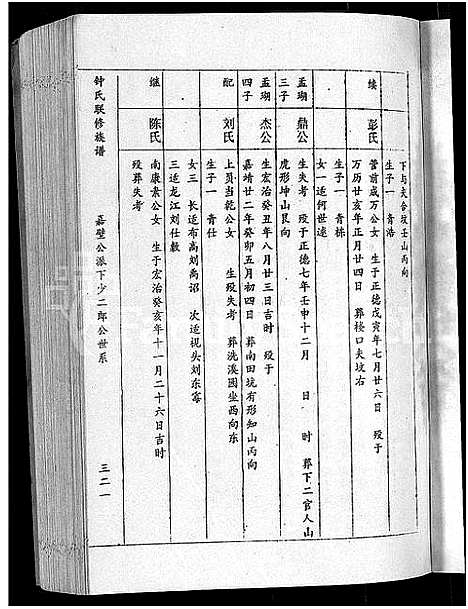 下与夫合坟壬山丙向
生子一 青浩
续 彭氏 营前成万公女 生于正德戊寅年七月廿六日 殁于
万历廿亥年正月廿四日 葬移口夫坟右
生子一 青栋
女一适何世逵
孟瑚三子 鼎公 生失考 殁于正德七年壬申十二月 日 时 葬下二官人山
虎形坤山艮向
孟瑚四子 杰公 生宏治癸丑年八月廿三日吉时 殁于
嘉靖廿二年癸卯五月初四日 葬南田坑有形知山丙向
配 刘氏 上员当乾公女 生殁失考 葬洗溪园坐西向东
生子一 青仕
女三 长适布高刘禹诏 次适枧头刘东
三适龙江刘仕敷
继 陈氏 南康素公女 生于宏治癸亥年十一月二十六日吉时
殁葬失考
钟氏联修族谱 嘉壁公派下少二郎公世系 三二一